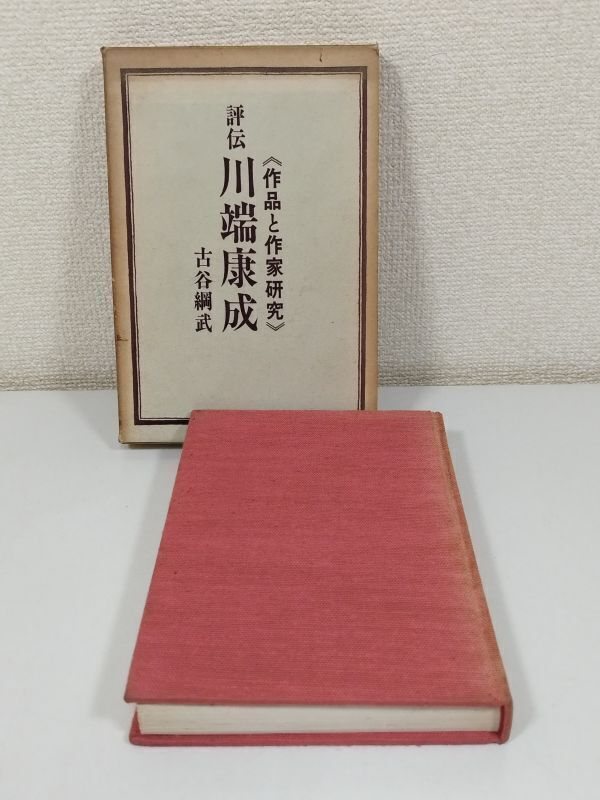 《作品と作家研究》
評伝
川端康成
古谷綱武